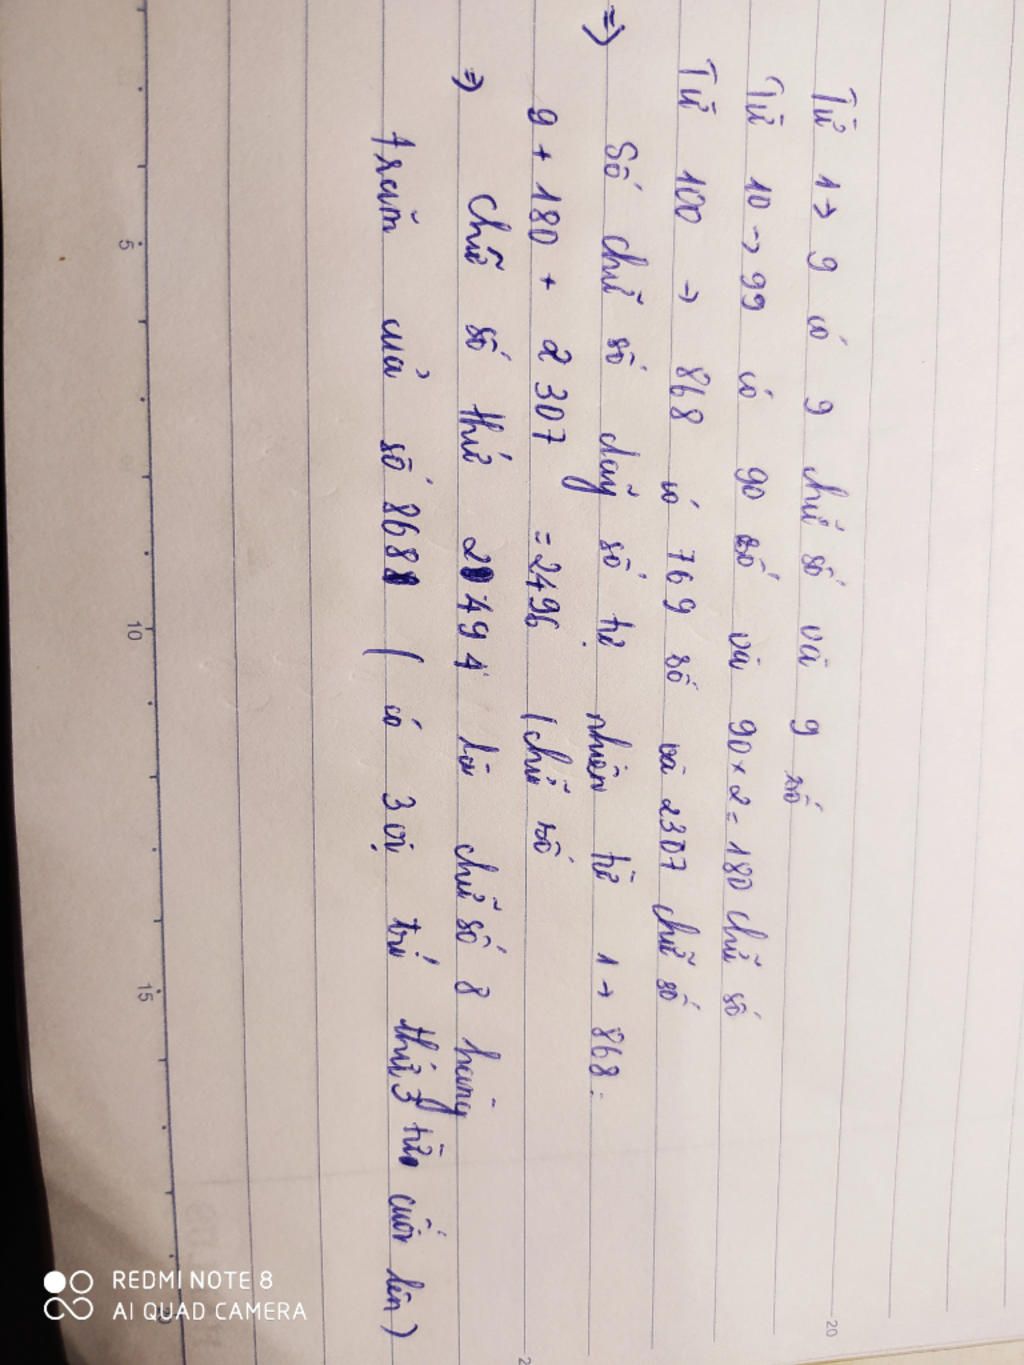 Từ 1 → 9 có 9 chữ số và 9 số
Từ 10 → 99 có 90 số và 90 × 2 = 180 chữ số
Từ 100 → 868 có 769 số và 2307 chữ số
⇒ Số chữ số dãy số tự nhiên từ 1 → 868:
9 + 180 + 2307 = 2496 (chữ số
⇒ Chữ số thứ 2494 là chữ số 8 hàng
trăm của số 868 ( có 3 vị trí thứ 3 từ cuối lên )
5
10
15
20
2
REDMI NOTE 8
AI QUAD CAMERA